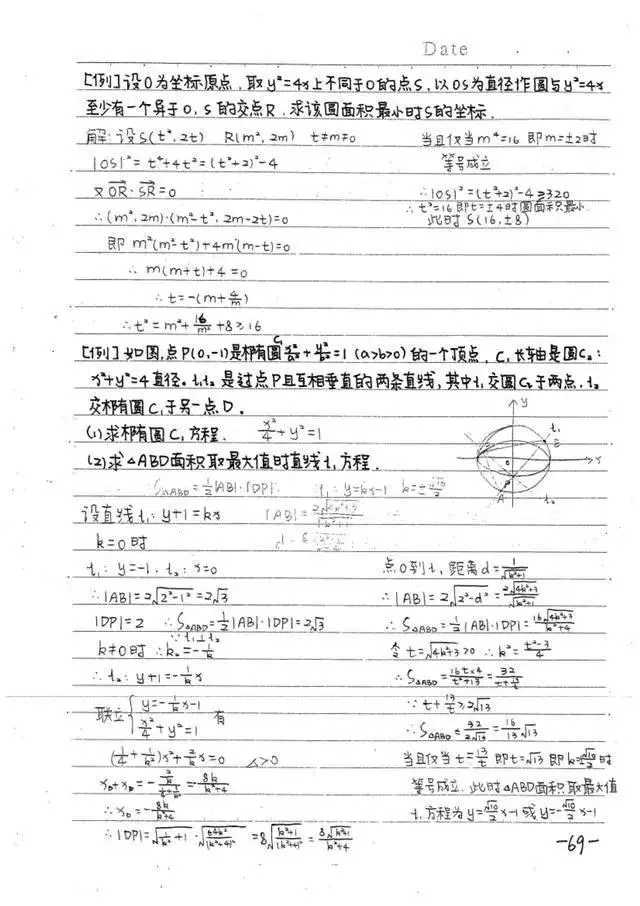 Date
[例] 设O为坐标原点, 取y²=4x上不同于O的点S, 以OS为直径作圆与y²=4x
至少有一个异于O, S的交点R. 求该圆面积最小时S的坐标.
解: 设S(t², 2t) R(m², 2m) t≠m≠0
|OS|²=t⁴+4t²=(t²+2)²-4
又OR·SR=0
∴(m², 2m)·(m²-t², 2m-2t)=0
即 m²(m²-t²)+4m(m-t)=0
∴m(m+t)+4=0
∴t=-(m+4/m)
∴t²=m²+16/m²+8≥16
当且仅当m⁴=16 即m=±2时
等号成立
∴|OS|²=(t²+2)²-4≥320
∴t²=16 即t=±4时圆面积最小.
此时S(16, ±8)
[例] 如图, 点P(0,-1)是椭圆C₁ x²/a²+y²/b²=1 (a>b>0)的一个顶点, C₁长轴是圆C₂:
x²+y²=4直径. l₁,l₂是过点P且互相垂直的两条直线, 其中l₁交圆C₂于两点, l₂
交椭圆C₁于另一点D.
(1) 求椭圆C₁方程. x²/4+y²=1
(2) 求△ABD面积取最大值时直线l₁方程.
y
l₁
B
x
o
P
A
l₂
S△ABD=1/2|AB|·|DP| l₁: y=kx-1
设直线l₁: y+1=kx
|AB|=
k=0时
l₁: y=-1, l₂: x=0
∴|AB|=2√(2²-1²)=2√3
|DP|=2 ∴S△ABD=1/2|AB|·|DP|=2√3
∵l₁⊥l₂
k≠0时 ∴k₂=-1/k
∴l₂: y+1=-1/k x
联立{y=-1/k x-1
x²/4+y²=1 有
(1/4+1/k²)x²+2/k x=0 △>0
x_D+x_P=-(2/k)/(1/4+1/k²)=-8k/(k²+4)
∴x_D=-8k/(k²+4)
∴|DP|=√(1/k²+1)·√(64k²/(k²+4)²)=8√((k²+1)/(k²+4)²)=8√(k²+1)/(k²+4)
点O到l₁距离d=1/√(k²+1)
∴|AB|=2√(2²-d²)=2√(4k²+3)/√(k²+1)
∴S△ABD=1/2|AB|·|DP|=16√(4k²+3)/(k²+4)
令t=√(4k²+3)>0 ∴k²=(t²-3)/4
∴S△ABD=16t×4/(t²+13)=32/(t+13/t)
∵t+13/t≥2√13
∴S△ABD≤32/2√13=16/13√13
当且仅当t=13/t即t=√13即k=±√10/2时
等号成立. 此时△ABD面积取最大值
l₁方程为y=√10/2x-1或y=-√10/2x-1
-69-